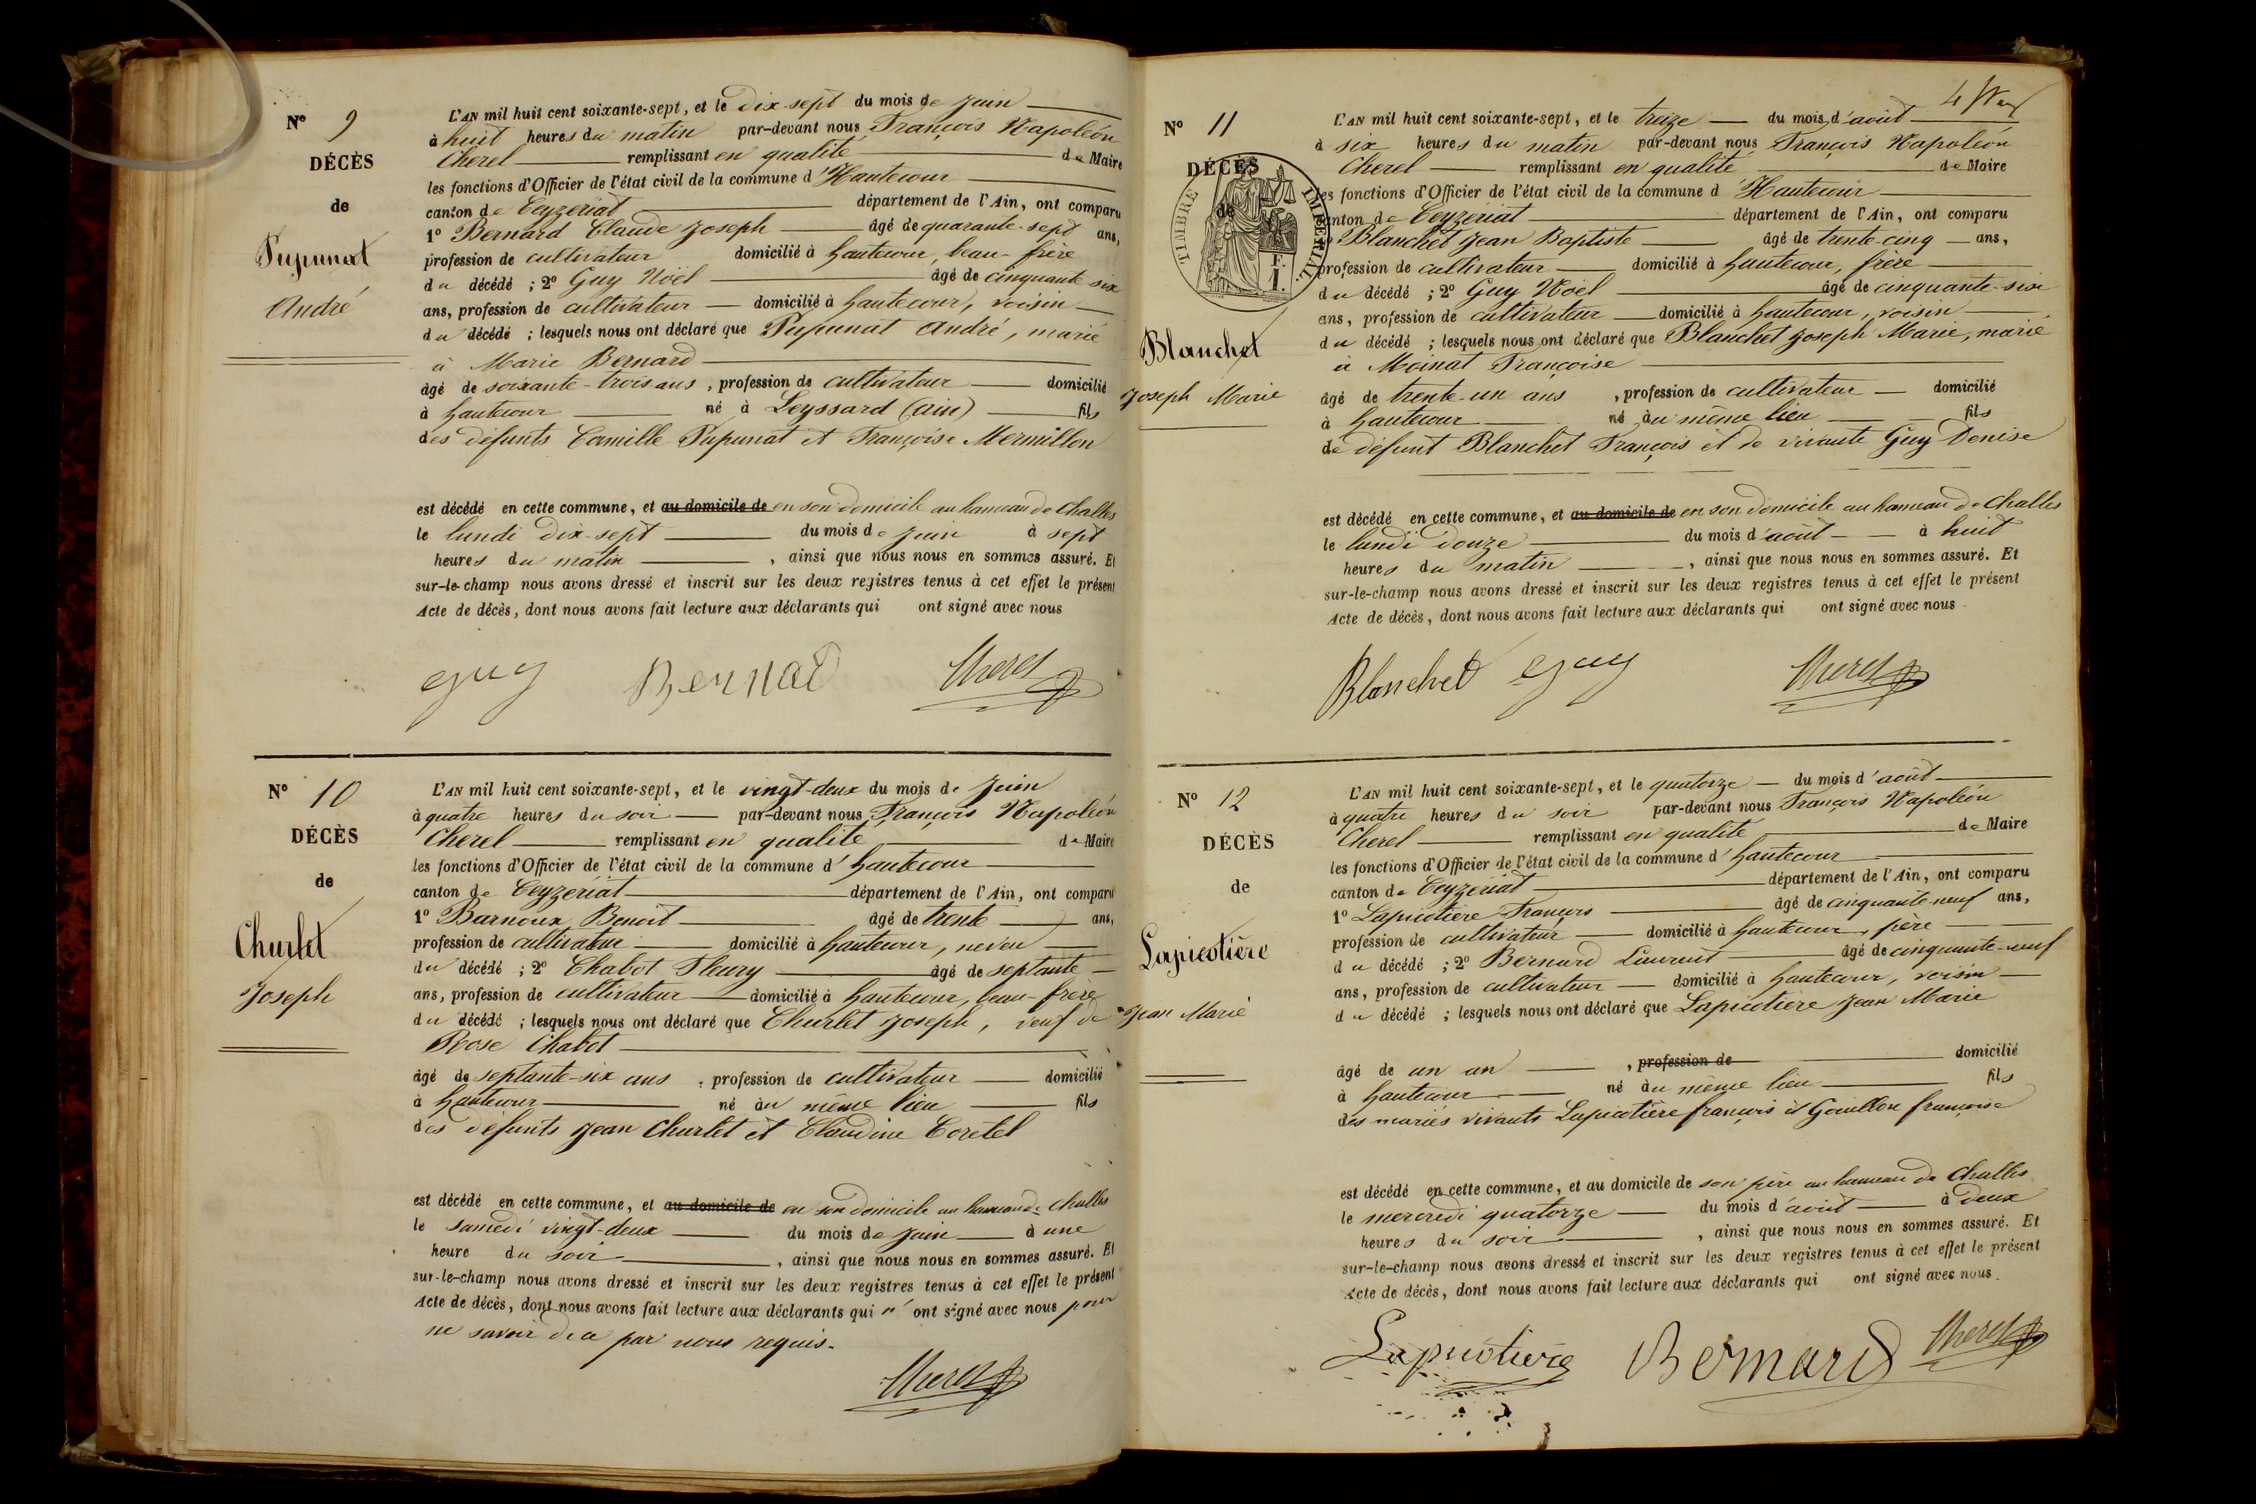 N° 9
DÉCÈS
de
Pupunat
André
L'AN mil huit cent soixante-sept, et le dix-sept du mois de juin
à huit heures du matin par-devant nous François Napoléon
Cherel remplissant en qualité de Maire
les fonctions d'Officier de l'état civil de la commune d'Hautecour
canton de Ceyzeriat département de l'Ain, ont comparu
1° Bernard Claude Joseph âgé de quarante-sept ans,
profession de cultivateur domicilié à hautecour, beau-frère
du décédé ; 2° Guy Noël âgé de cinquante six
ans, profession de cultivateur domicilié à hautecour, voisin
du décédé ; lesquels nous ont déclaré que Pupunat André, marié
à Marie Bernard
âgé de soixante-trois ans, profession de cultivateur domicilié
à hautecour né à Leyssard (Ain) fils
des défunts Camille Pupunat et Françoise Mermillon
est décédé en cette commune, et au domicile de en son domicile au hameau de Challes
le lundi dix-sept du mois de juin à sept
heures du matin, ainsi que nous nous en sommes assuré. Et
sur-le-champ nous avons dressé et inscrit sur les deux registres tenus à cet effet le présent
Acte de décès, dont nous avons fait lecture aux déclarants qui ont signé avec nous
Guy Bernad Cherel
N° 10
DÉCÈS
de
Churlet
Joseph
L'AN mil huit cent soixante-sept, et le vingt-deux du mois de juin
à quatre heures du soir par-devant nous François Napoléon
Cherel remplissant en qualité de Maire
les fonctions d'Officier de l'état civil de la commune d'hautecour
canton de Ceyzeriat département de l'Ain, ont comparu
1° Barnoux Benoit âgé de trente ans,
profession de cultivateur domicilié à hautecour, neveu
du décédé ; 2° Chabot Fleury âgé de septante
ans, profession de cultivateur domicilié à hautecour, beau-frère
du décédé ; lesquels nous ont déclaré que Churlet Joseph, veuf de
Rose Chabot
âgé de septante-six ans, profession de cultivateur domicilié
à hautecour né au même lieu fils
des défunts Jean Churlet et Claudine Coretel
est décédé en cette commune, et au domicile de en son domicile au hameau de Challes
le samedi vingt-deux du mois de juin à une
heure du soir, ainsi que nous nous en sommes assuré. Et
sur-le-champ nous avons dressé et inscrit sur les deux registres tenus à cet effet le présent
Acte de décès, dont nous avons fait lecture aux déclarants qui n'ont signé avec nous pour
ne savoir de ce par nous requis.
Cherel
N° 11
DÉCÈS
de
TIMBRE IMPÉRIAL.
Blanchet
Joseph Marie
L'AN mil huit cent soixante-sept, et le treize du mois d'août
à six heures du matin par-devant nous François Napoléon
Cherel remplissant en qualité de Maire
les fonctions d'Officier de l'état civil de la commune d'Hautecour
canton de Ceyzeriat département de l'Ain, ont comparu
Blanchet Jean Baptiste âgé de trente-cinq ans,
profession de cultivateur domicilié à hautecour, frère
du décédé ; 2° Guy Noël âgé de cinquante-six
ans, profession de cultivateur domicilié à hautecour, voisin
du décédé ; lesquels nous ont déclaré que Blanchet Joseph Marie, marié
à Moinat Françoise
âgé de trente-un ans, profession de cultivateur domicilié
à hautecour né au même lieu fils
de défunt Blanchet François et de vivante Guy Denise
est décédé en cette commune, et au domicile de en son domicile au hameau de Challes
le lundi douze du mois d'août à huit
heures du matin, ainsi que nous nous en sommes assuré. Et
sur-le-champ nous avons dressé et inscrit sur les deux registres tenus à cet effet le présent
Acte de décès, dont nous avons fait lecture aux déclarants qui ont signé avec nous
Blanchet Guy Cherel
N° 12
DÉCÈS
de
Lapicotière
Jean Marie
L'AN mil huit cent soixante-sept, et le quatorze du mois d'août
à quatre heures du soir par-devant nous François Napoléon
Cherel remplissant en qualité de Maire
les fonctions d'Officier de l'état civil de la commune d'hautecour
canton de Ceyzeriat département de l'Ain, ont comparu
1° Lapicotière François âgé de cinquante-neuf ans,
profession de cultivateur domicilié à hautecour, père
du décédé ; 2° Bernard Laurent âgé de cinquante-neuf
ans, profession de cultivateur domicilié à hautecour, voisin
du décédé ; lesquels nous ont déclaré que Lapicotière Jean Marie
âgé de un an, profession de domicilié
à hautecour né au même lieu fils
des mariés vivants Lapicotière françois et Gouillon françoise
est décédé en cette commune, et au domicile de son père au hameau de Challes
le mercredi quatorze du mois d'août à deux
heures du soir, ainsi que nous nous en sommes assuré. Et
sur-le-champ nous avons dressé et inscrit sur les deux registres tenus à cet effet le présent
Acte de décès, dont nous avons fait lecture aux déclarants qui ont signé avec nous.
Lapicotiere Bernard Cherel